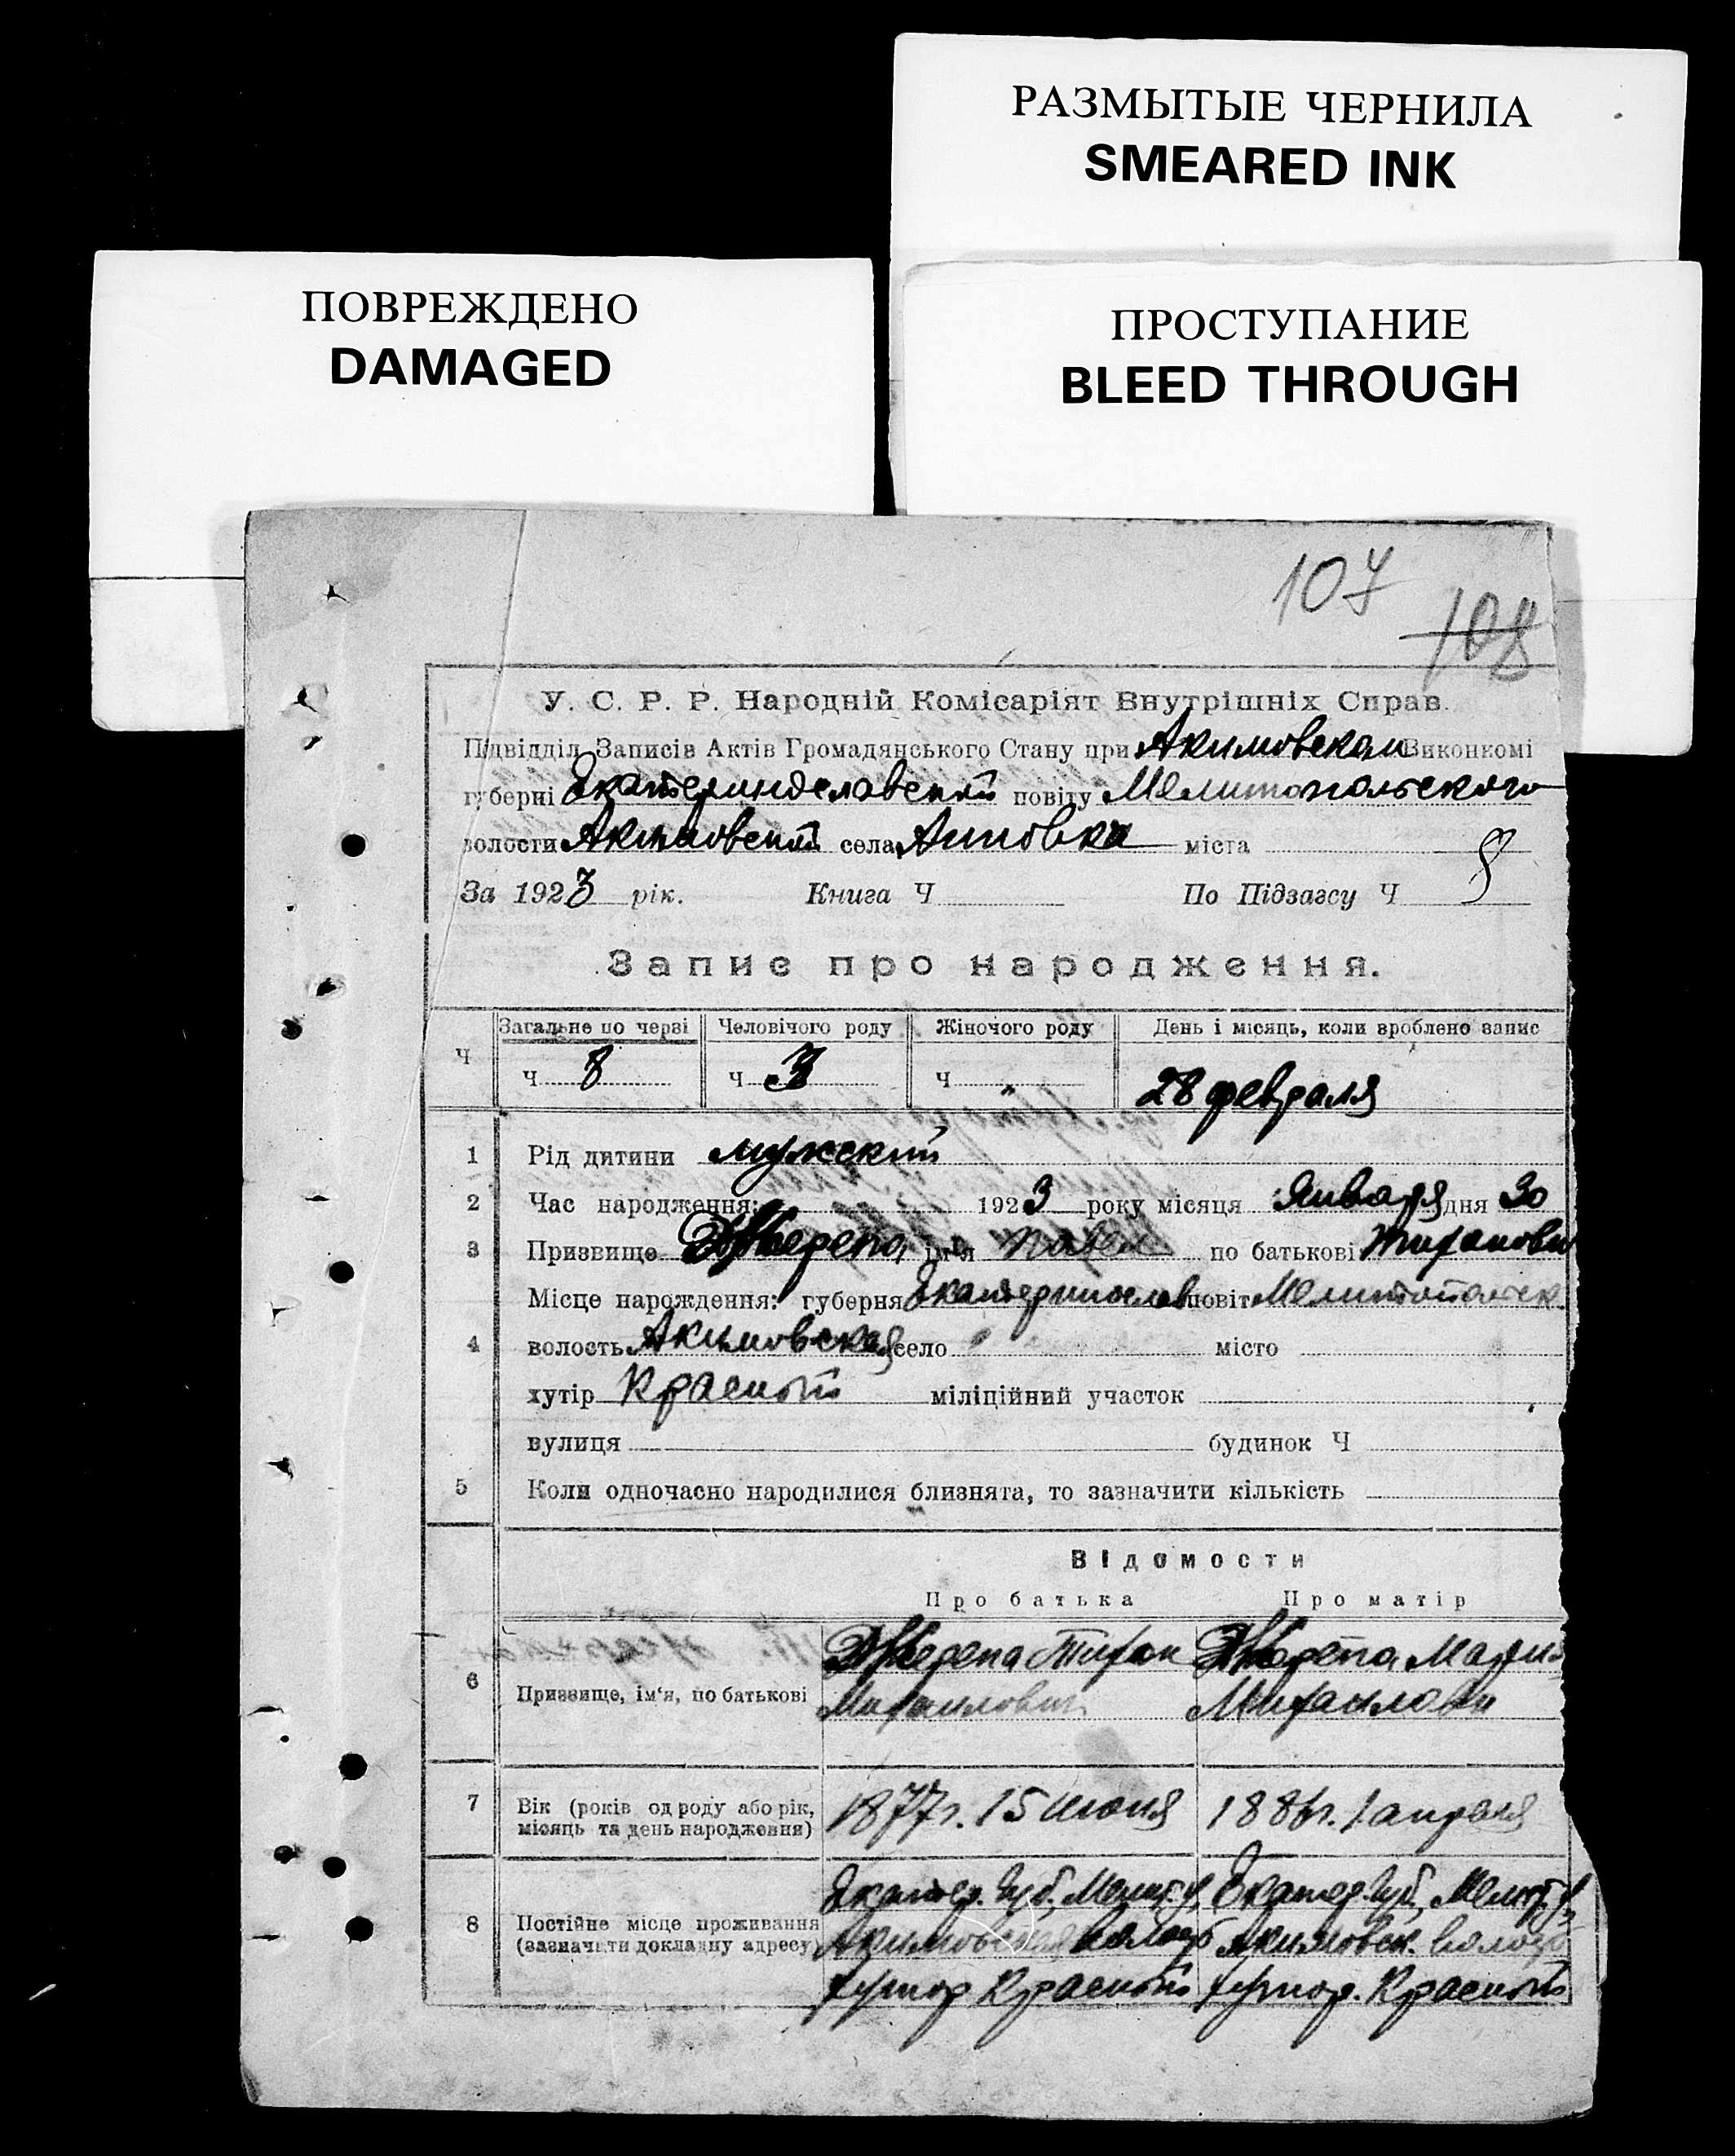 РАЗМЫТЫЕ ЧЕРНИЛА
SMEARED INK
ПОВРЕЖДЕНО
DAMAGED
ПРОСТУПАНИЕ
BLEED THROUGH
107
108
У. С. Р. Р. Народній Комісаріят Внутрішніх Справ.
Підвідділ Записів Актів Громадянського Стану при Акимовском Виконкомі
губерні Екатеринославской повіту Мелитопольского
волости Акимовской села Акимовка міста
За 1923 рік. Книга Ч По Підзагсу Ч 8
Запис про народження.
Ч Загальне по черві Человічого роду Жіночого роду День і місяць, коли вроблено запис
Ч 8 Ч 3 Ч " 28 февраля
1 Рід дитини мужский
2 Час народження: 1923 року місяця Января дня 30
3 Призвище ім'я Павел по батькові
Місце нарождення: губерня Екатеринослав повіт Мелитопольск
4 волость Акимовская село місто
хутір Красный міліційний участок
вулиця будинок Ч
5 Коли одночасно народилися близнята, то зазначити кількість
Відомости
Про батька Про матір
6 Призвище, ім'я, по батькові
Тихон Мария
Михайлович Михайлови
7 Вік (років од роду або рік, місяць та день народження) 1877г. 15 июня 1886г. 1 апреля
8 Постійне місце проживання (зазначити докладну адресу)
Екатер. губ, Мелит. у, Екатер. губ, Мелит. у,
Акимовская волость Акимовск. волость
хутор Красный хутор. Красный